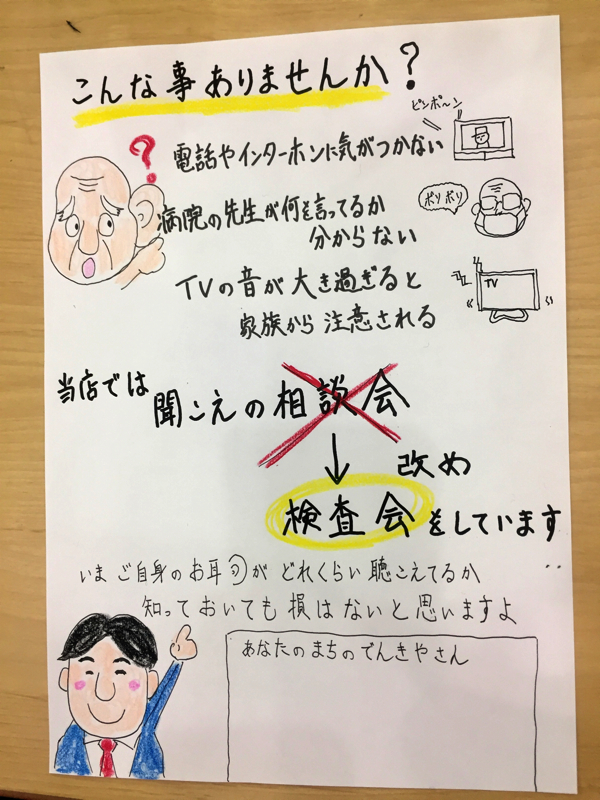 こんな事ありませんか?
ピンポ〜ン
?
電話やインターホンに気がつかない
病院の先生が何を言ってるか
ボソボソ
分からない
TVの音が大き過ぎると
TV
家族から注意される
当店では
聞こえの相談会
↓ 改め
検査会をしています
いまご自身のお耳がどれくらい聴こえてるか
知っておいても損はないと思いますよ
あなたのまちのでんきやさん